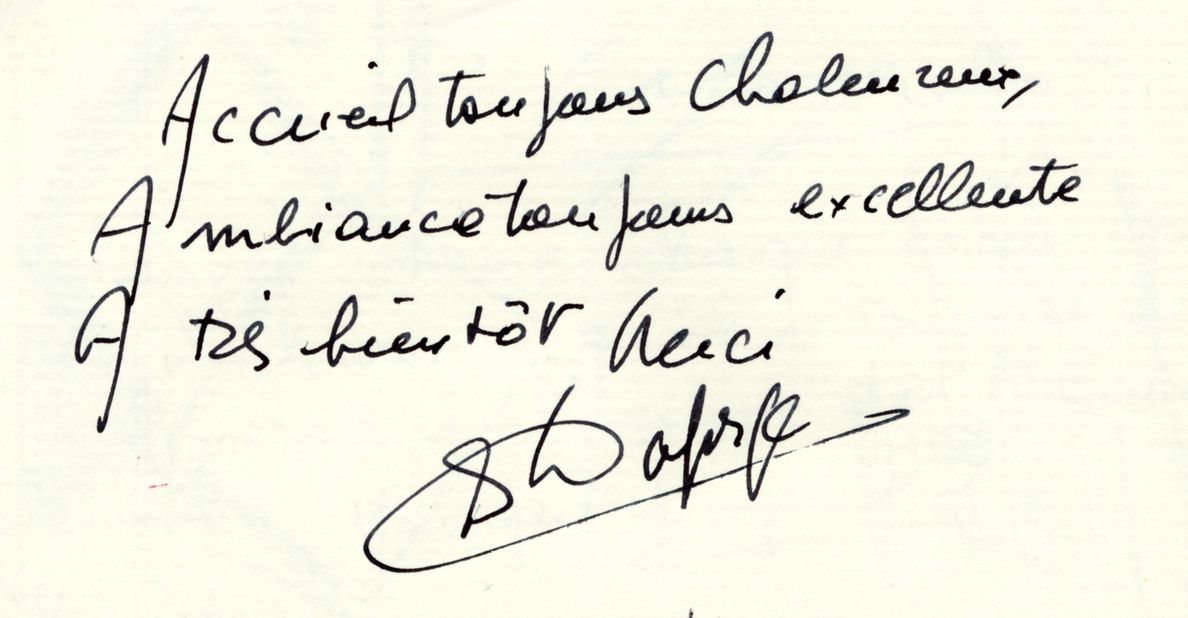 Accueil toujours Chaleureux,
Ambiance toujours excellente
A très bientôt Merci